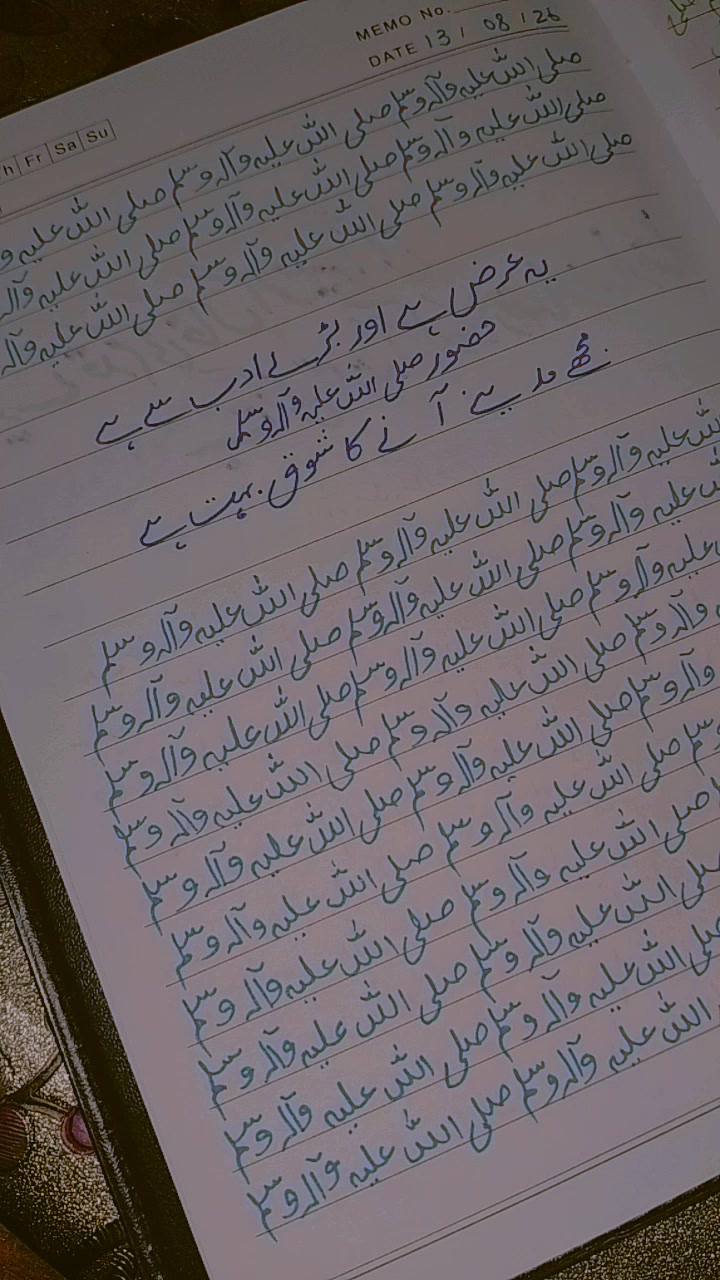 MEMO No.
DATE 13 / 08 / 26
Fr Sa Su
صلی اللہ علیہ وآلہ وسلم صلی اللہ علیہ وآلہ وسلم صلی اللہ علیہ و
صلی اللہ علیہ وآلہ وسلم صلی اللہ علیہ وآلہ وسلم صلی اللہ علیہ وآلہ
صلی اللہ علیہ وآلہ وسلم صلی اللہ علیہ وآلہ وسلم صلی اللہ علیہ وآلہ
یہ عرض ہے اور بڑے ادب سے ہے
حضور صلی اللہ علیہ وآلہ وسلم
مجھے مدینے آنے کا شوق بہت ہے
اللہ علیہ وآلہ وسلم صلی اللہ علیہ وآلہ وسلم صلی اللہ علیہ وآلہ وسلم
علیہ وآلہ وسلم صلی اللہ علیہ وآلہ وسلم صلی اللہ علیہ وآلہ وسلم
علیہ وآلہ وسلم صلی اللہ علیہ وآلہ وسلم صلی اللہ علیہ وآلہ وسلم
وآلہ وسلم صلی اللہ علیہ وآلہ وسلم صلی اللہ علیہ وآلہ وسلم
وآلہ وسلم صلی اللہ علیہ وآلہ وسلم صلی اللہ علیہ وآلہ وسلم
وسلم صلی اللہ علیہ وآلہ وسلم صلی اللہ علیہ وآلہ وسلم
صلی اللہ علیہ وآلہ وسلم صلی اللہ علیہ وآلہ وسلم
صلی اللہ علیہ وآلہ وسلم صلی اللہ علیہ وآلہ وسلم
صلی اللہ علیہ وآلہ وسلم صلی اللہ علیہ وآلہ وسلم
اللہ علیہ وآلہ وسلم صلی اللہ علیہ وآلہ وسلم